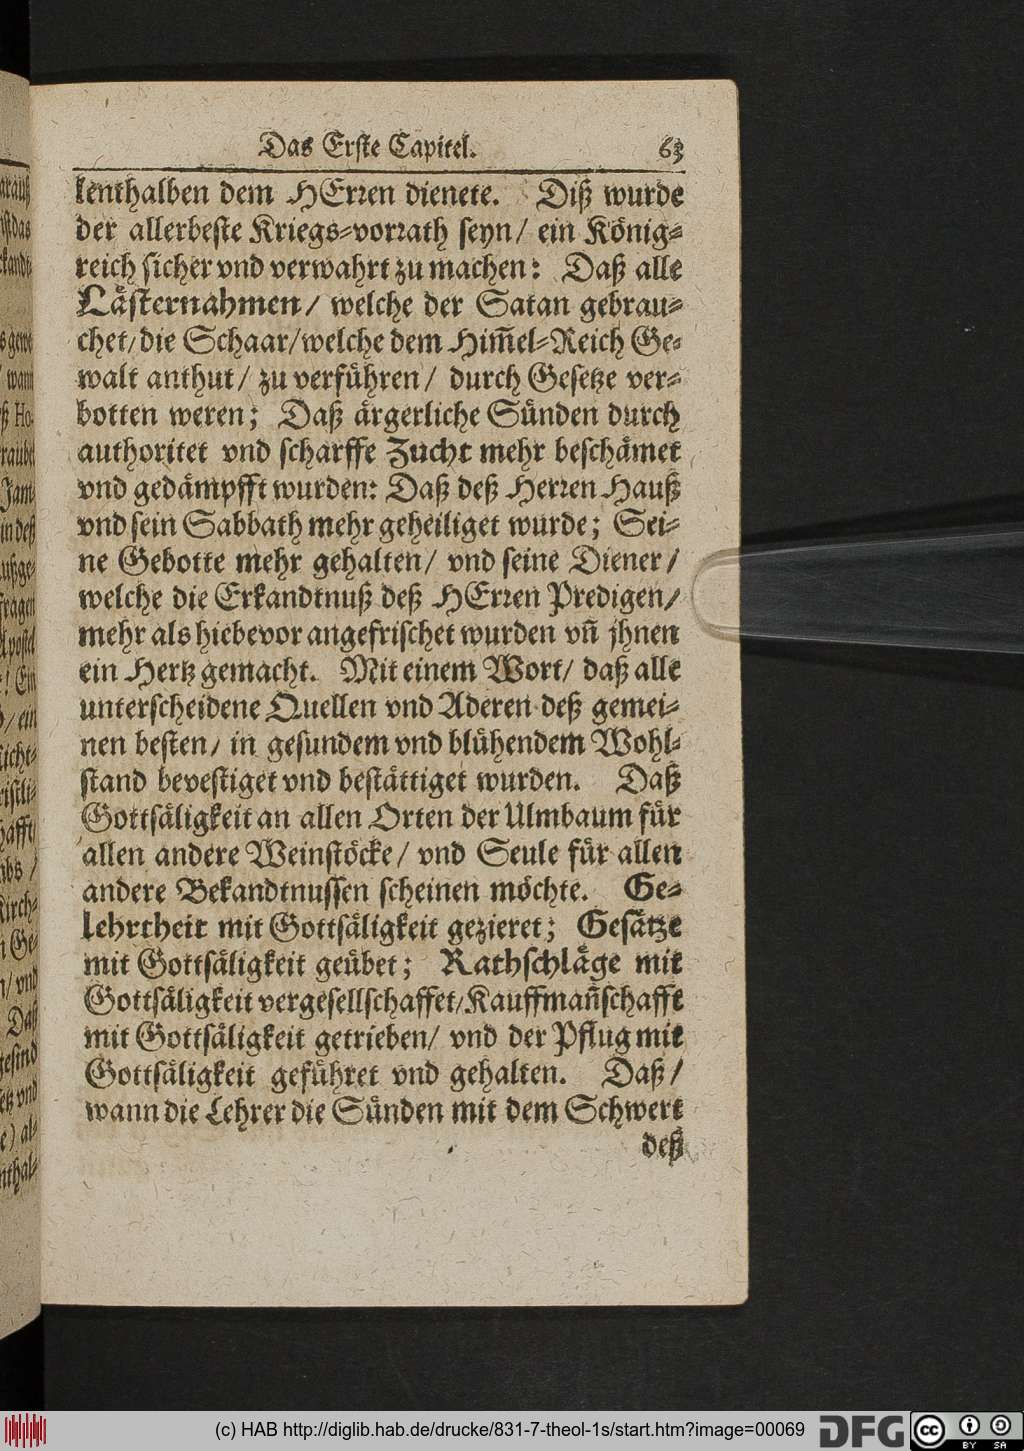 Das Erste Capitel. 63
lenthalben dem HErren dienete. Diß wurde
der allerbeste Kriegs-vorrath seyn/ ein König-
reich sicher vnd verwahrt zu machen: Daß alle
Lästernahmen/ welche der Satan gebrau-
chet/die Schaar/welche dem Him̃el-Reich Ge-
walt anthut/ zu verführen/ durch Gesetze ver-
botten weren; Daß ärgerliche Sünden durch
authoritet vnd scharffe Zucht mehr beschämet
vnd gedämpfft wurden: Daß deß Herren Hauß
vnd sein Sabbath mehr geheiliget wurde; Sei-
ne Gebotte mehr gehalten/ vnd seine Diener/
welche die Erkandtnuß deß HErren Predigen/
mehr als hiebevor angefrischet wurden vñ jhnen
ein Hertz gemacht. Mit einem Wort/ daß alle
unterscheidene Quellen vnd Aderen deß gemei-
nen besten/ in gesundem vnd blühendem Wohl-
stand bevestiget vnd bestättiget wurden. Daß
Gottsäligkeit an allen Orten der Ulmbaum für
allen andere Weinstöcke/ vnd Seule für allen
andere Bekandtnussen scheinen möchte. Ge-
lehrtheit mit Gottsäligkeit gezieret; Gesätze
mit Gottsäligkeit geübet; Rathschläge mit
Gottsäligkeit vergesellschaffet/Kauffmañschafft
mit Gottsäligkeit getrieben/ vnd der Pflug mit
Gottsäligkeit geführet vnd gehalten. Daß/
wann die Lehrer die Sünden mit dem Schwert
deß
(c) HAB http://diglib.hab.de/drucke/831-7-theol-1s/start.htm?image=00069
DFG
cc
BY SA